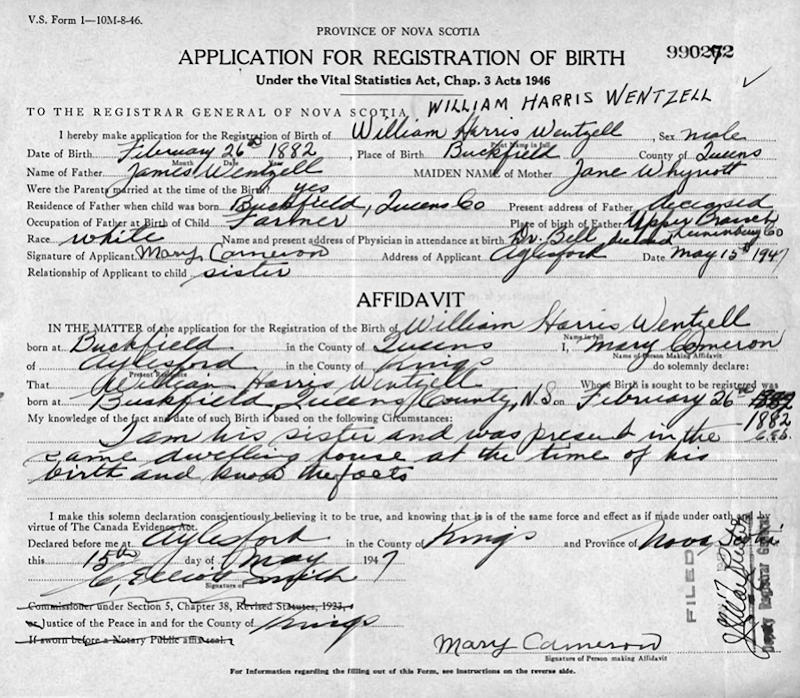 V.S. Form 1—10M-8-46.
PROVINCE OF NOVA SCOTIA
APPLICATION FOR REGISTRATION OF BIRTH
Under the Vital Statistics Act, Chap. 3 Acts 1946
WILLIAM HARRIS WENTZELL ✓
TO THE REGISTRAR GENERAL OF NOVA SCOTIA
I hereby make application for the Registration of Birth of William Harris Wentzell, Sex male
Name in full
Date of Birth February 26th 1882, Place of Birth Buckfield County of Queens
Month Date Year
Name of Father James Wentzell MAIDEN NAME of Mother Jane Whynott
Were the Parents married at the time of the Birth? yes
Residence of Father when child was born Buckfield, Queens Co Present address of Father deceased
Occupation of Father at Birth of Child Farmer Place of birth of Father Upper Branch Lunenburg Co
Race white Name and present address of Physician in attendance at birth Dr. Bell
Signature of Applicant Mary Cameron Address of Applicant Aylesford Date May 15th 1947
Relationship of Applicant to child sister
AFFIDAVIT
IN THE MATTER of the application for the Registration of the Birth of William Harris Wentzell
Name in full
born at Buckfield in the County of Queens I, Mary Cameron
Name of Person Making Affidavit
of Aylesford in the County of Kings do solemnly declare:
Present Residence
That William Harris Wentzell Whose Birth is sought to be registered was
born at Buckfield, Queens County, N.S. on February 26th 1882
My knowledge of the fact and date of such Birth is based on the following Circumstances: 1882
I am his sister and was present in the
same dwelling house at the time of his
birth and know the facts
I make this solemn declaration conscientiously believing it to be true, and knowing that is of the same force and effect as if made under oath and by
virtue of The Canada Evidence Act.
Declared before me at Aylesford in the County of Kings and Province of Nova Scotia
this 15th day of May 1947
C. Elliott Smith
Signature of
Commissioner under Section 5, Chapter 38, Revised Statutes, 1923,
or Justice of the Peace in and for the County of Kings
If sworn before a Notary Public affix seal.
FILED
Deputy Registrar General
Mary Cameron
Signature of Person making Affidavit
For Information regarding the filling out of this Form, see instructions on the reverse side.